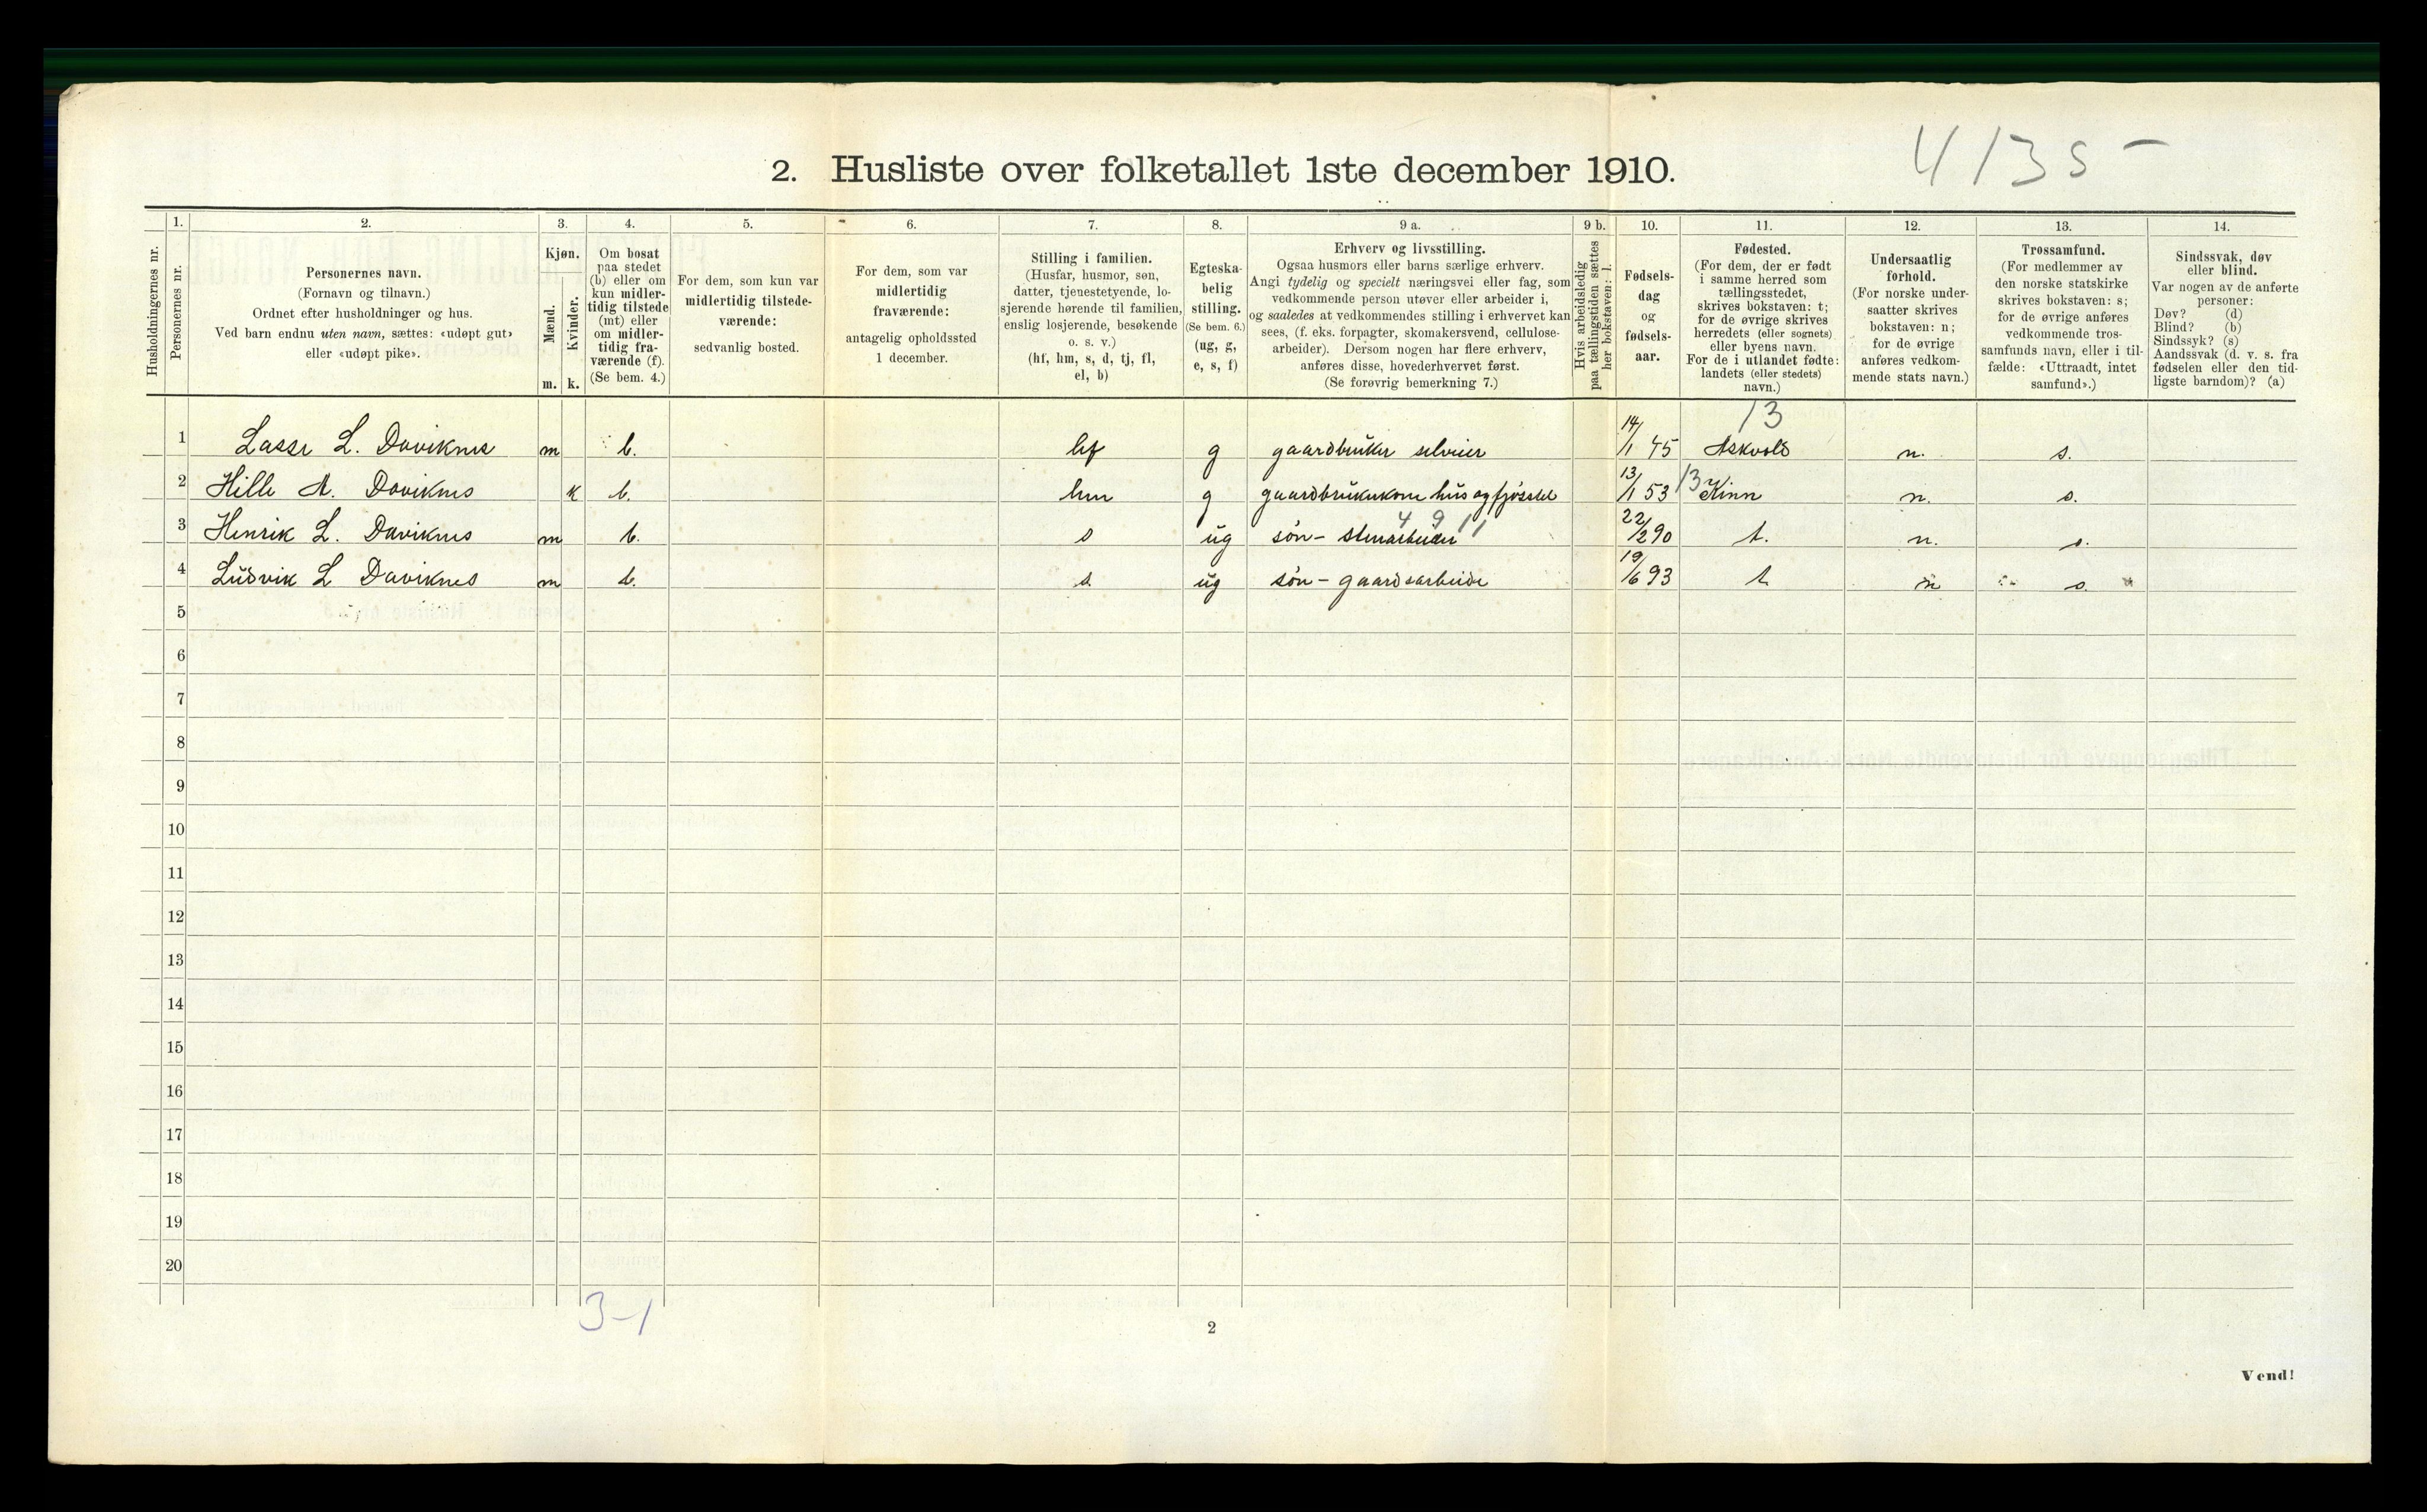 4135-
2. Husliste over folketallet 1ste december 1910.
1. 2. 3. 4. 5. 6. 7. 8. 9 a. 9 b. 10. 11. 12. 13. 14.
Husholdningernes nr.
Personernes nr.
Personernes navn.
(Fornavn og tilnavn.)
Ordnet efter husholdninger og hus.
Ved barn endnu uten navn, sættes: «udøpt gut»
eller «udøpt pike».
Kjøn.
Mænd.
Kvinder.
m. k.
Om bosat
paa stedet
(b) eller om
kun midler-
tidig tilstede
(mt) eller
om midler-
tidig fra-
værende (f).
(Se bem. 4.)
For dem, som kun var
midlertidig tilstede-
værende:
sedvanlig bosted.
For dem, som var
midlertidig
fraværende:
antagelig opholdssted
1 december.
Stilling i familien.
(Husfar, husmor, søn,
datter, tjenestetyende, lo-
sjerende hørende til familien,
enslig losjerende, besøkende
o. s. v.)
(hf, hm, s, d, tj, fl,
el, b)
Egteska-
belig
stilling.
(Se bem. 6.)
(ug, g,
e, s, f)
Erhverv og livsstilling.
Ogsaa husmors eller barns særlige erhverv.
Angi tydelig og specielt næringsvei eller fag, som
vedkommende person utøver eller arbeider i,
og saaledes at vedkommendes stilling i erhvervet kan
sees, (f. eks. forpagter, skomakersvend, cellulose-
arbeider). Dersom nogen har flere erhverv,
anføres disse, hovederhvervet først.
(Se forøvrig bemerkning 7.)
Hvis arbeidsledig
paa tællingstiden sættes
her bokstaven: l.
Fødsels-
dag
og
fødsels-
aar.
Fødested.
(For dem, der er født
i samme herred som
tællingsstedet,
skrives bokstaven: t;
for de øvrige skrives
herredets (eller sognets)
eller byens navn.
For de i utlandet fødte:
landets (eller stedets)
navn.)
Undersaatlig
forhold.
(For norske under-
saatter skrives
bokstaven: n;
for de øvrige
anføres vedkom-
mende stats navn.)
Trossamfund.
(For medlemmer av
den norske statskirke
skrives bokstaven: s;
for de øvrige anføres
vedkommende tros-
samfunds navn, eller i til-
fælde: «Uttraadt, intet
samfund».)
Sindssvak, døv
eller blind.
Var nogen av de anførte
personer:
Døv? (d)
Blind? (b)
Sindssyk? (s)
Aandssvak (d. v. s. fra
fødselen eller den tid-
ligste barndom)? (a)
13
1 Lasse L. Daviknes m b. hf g gaardbruker selveier 14/1 45 Askvold n. s.
2 Hille A. Daviknes k b. hm g gaardbrukukone hus og fjøsstel 13/1 53 13 Kinn n. s.
4 9 11
3 Henrik L. Daviknes m b. s ug søn - stenarbeider 22/2 90 t. n. s.
4 Ludvik L Daviknes m b. s. ug søn - gaardsarbeide 19/6 93 t n s.
5
6
7
8
9
10
11
12
13
14
15
16
17
18
19
20
3-1
2
Vend!